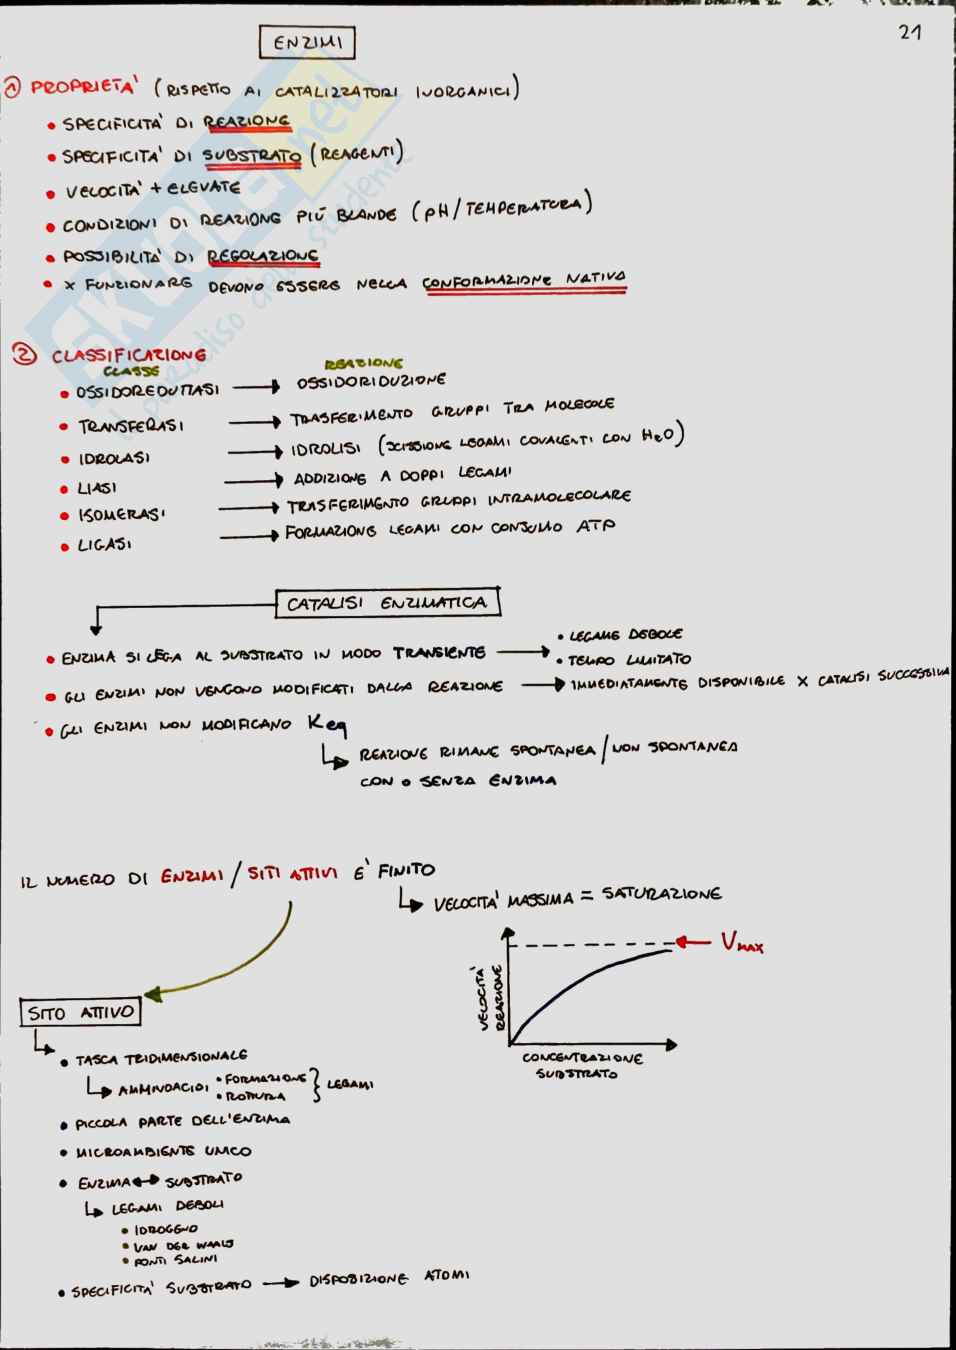 21
ENZIMI
1 PROPRIETA' (RISPETTO AI CATALIZZATORI INORGANICI)
• SPECIFICITA' DI REAZIONE
• SPECIFICITA' DI SUBSTRATO (REAGENTI)
• VELOCITA' + ELEVATE
• CONDIZIONI DI REAZIONE PIÚ BLANDE (PH/TEMPERATURA)
• POSSIBILITA' DI REGOLAZIONE
• X FUNZIONARE DEVONO ESSERE NELLA CONFORMAZIONE NATIVA
2 CLASSIFICAZIONE
CLASSE REAZIONE
• OSSIDOREDUTTASI → OSSIDORIDUZIONE
• TRANSFERASI → TRASFERIMENTO GRUPPI TRA MOLECOLE
• IDROLASI → IDROLISI (SCISSIONE LEGAMI COVALENTI CON H2O)
• LIASI → ADDIZIONE A DOPPI LEGAMI
• ISOMERASI → TRASFERIMENTO GRUPPI INTRAMOLECOLARE
• LIGASI → FORMAZIONE LEGAMI CON CONSUMO ATP
CATALISI ENZIMATICA
• ENZIMA SI LEGA AL SUBSTRATO IN MODO TRANSIENTE → • LEGAME DEBOLE
• TEMPO LIMITATO
• GLI ENZIMI NON VENGONO MODIFICATI DALLA REAZIONE → IMMEDIATAMENTE DISPONIBILE X CATALISI SUCCESSIVA
• GLI ENZIMI NON MODIFICANO Keq
REAZIONE RIMANE SPONTANEA / NON SPONTANEA
CON O SENZA ENZIMA
IL NUMERO DI ENZIMI / SITI ATTIVI E' FINITO
VELOCITA' MASSIMA = SATURAZIONE
VMAX
VELOCITA'
REAZIONE
CONCENTRAZIONE
SUBSTRATO
SITO ATTIVO
• TASCA TRIDIMENSIONALE
AMMINOACIDI • FORMAZIONE } LEGAMI
• ROTTURA
• PICCOLA PARTE DELL'ENZIMA
• MICROAMBIENTE UNICO
• ENZIMA ↔ SUBSTRATO
LEGAMI DEBOLI
• IDROGENO
• VAN DER WAALS
• PONTI SALINI
• SPECIFICITA' SUBSTRATO → DISPOSIZIONE ATOMI
skuola.net
il paradiso dello studente